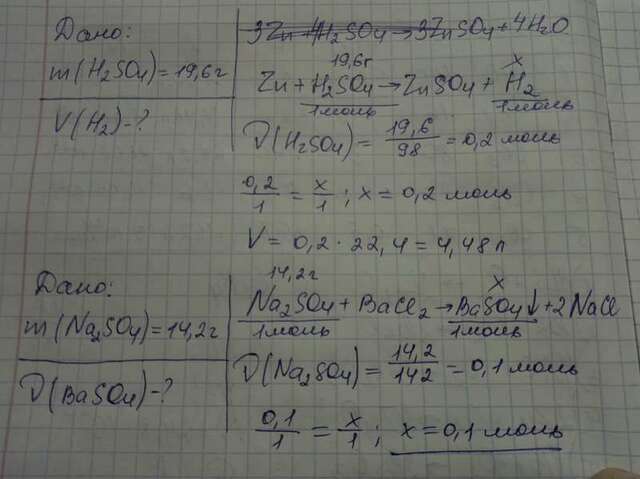 Дано:
m(H₂SO₄)=19,6г
V(H₂)-?
3Zn+4H₂SO₄→3ZnSO₄+4H₂O
19,6г x
Zn+H₂SO₄→ZnSO₄+H₂
1моль 1моль
ν(H₂SO₄)=19,6/98=0,2 моль
0,2/1=x/1; x=0,2 моль
V=0,2·22,4=4,48л
Дано:
m(Na₂SO₄)=14,2г
ν(BaSO₄)-?
14,2г x
Na₂SO₄+BaCl₂→BaSO₄↓+2NaCl
1моль 1моль
ν(Na₂SO₄)=14,2/142=0,1 моль
0,1/1=x/1; x=0,1 моль